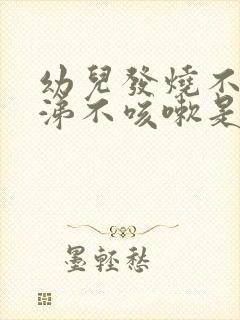 幼兒發燒不
涕不咳嗽是
墨輕愁